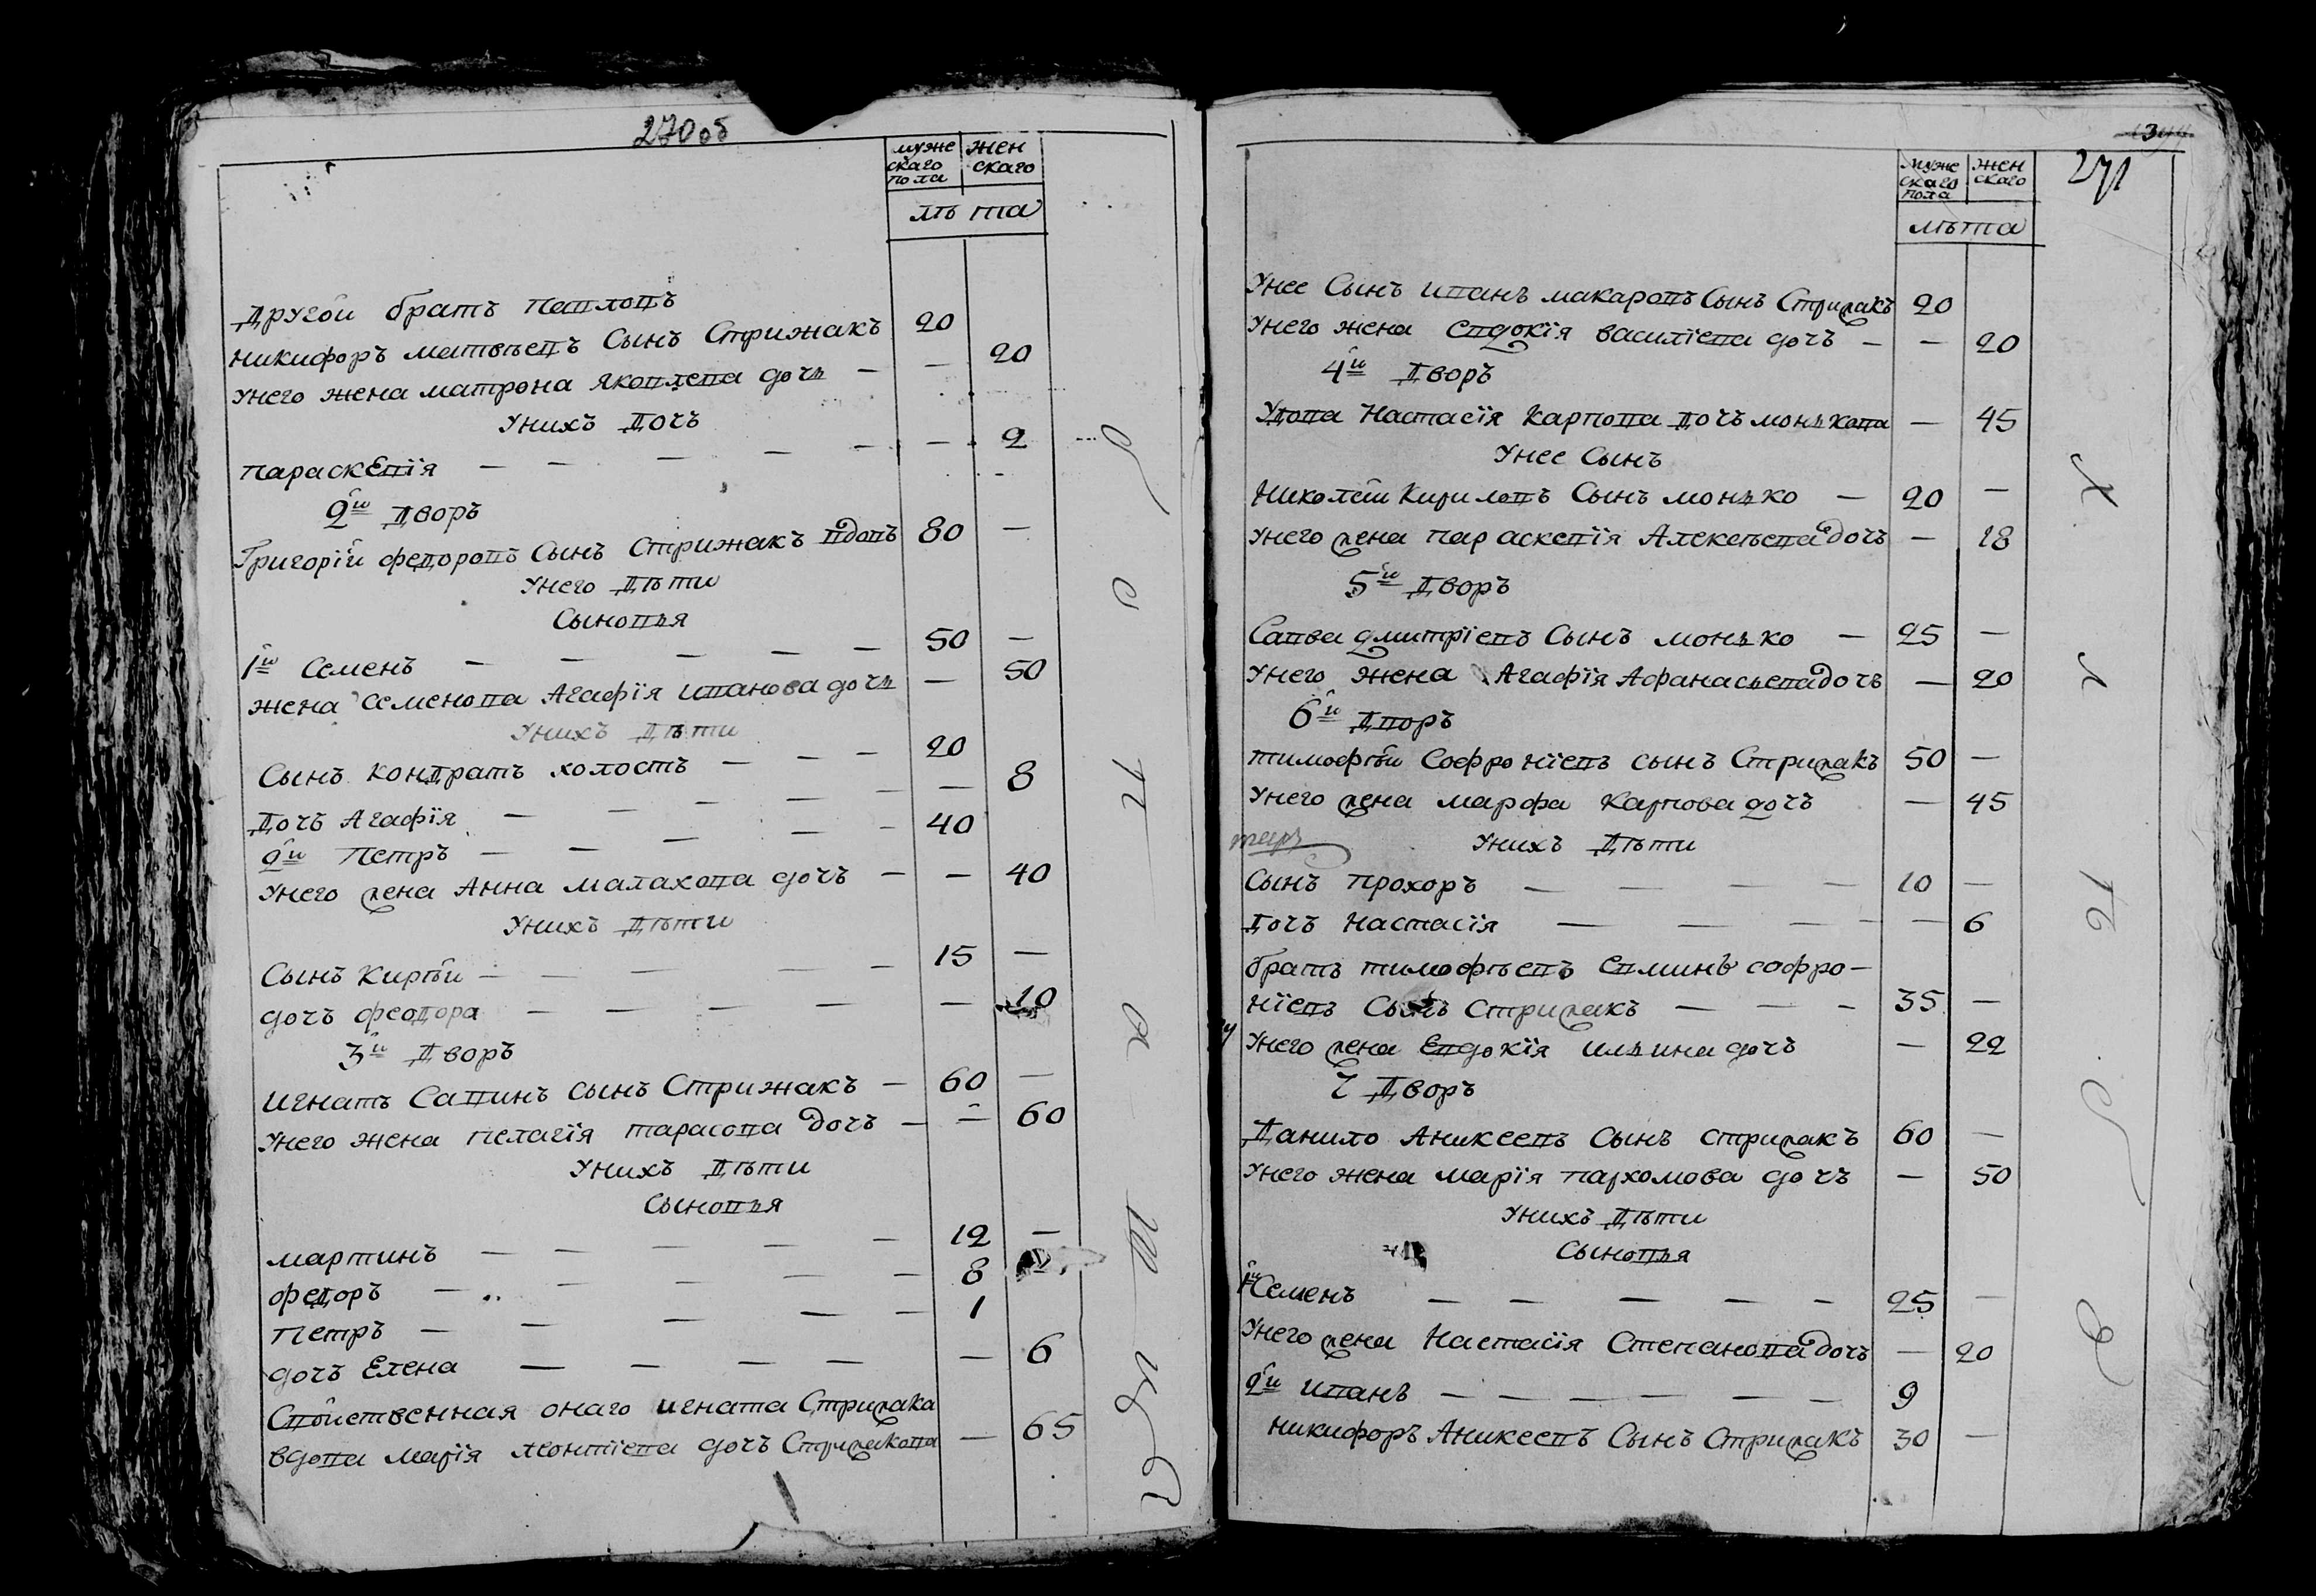 270 об
муже
скаго
пола
жен
скаго
лѣта
другой братъ павловъ
никифоръ матвѣевъ Сынъ Стрижакъ 20
унего жена матрона яковлева дочь — — 20
Унихъ Дочь
параскевія — — — — — — 2
2й Дворъ
Григорій федоровъ Сынъ Стрижакъ вдовъ 80 —
Унего Дѣти
Сыновья
1й Семенъ — — — — — 50 —
жена Семенова Агафія иванова дочь — 50
Унихъ Дѣти
Сынъ кондратъ холостъ — — — 20
Дочь Агафія — — — — — — 8
2й Петръ — — — — — 40
Унего жена Анна малахова дочь — — 40
Унихъ Дѣти
Сынъ Кирѣй — — — — — 15 —
дочь феодора — — — — — 10
3й Дворъ
Игнатъ Савинъ сынъ Стрижакъ — 60 —
Унего жена пелагія тарасова дочь — — 60
Унихъ Дѣти
Сыновья
мартинъ — — — — — 12 —
федоръ — — — — — 8
Петръ — — — — — 1
дочь Елена — — — — — 6
Свойственная онаго игната Стрижака
вдова марія леонтіева дочь Стрижакова — 65
271
муже
скаго
пола
жен
скаго
лѣта
Унее Сынъ иванъ макаровъ Сынъ Стрижакъ 20
Унего жена евдокія василіева дочь — — 20
4й Дворъ
Удова Настасія Карпова Дочь монькова — 45
Унее Сынъ
Николай Кириловъ Сынъ монько — 20 —
Унего жена параскевія Алексѣева дочь — 18
5й Дворъ
Савва дмитріевъ Сынъ монько — 25 —
Унего жена Агафія Афанасьева дочь — 20
6й Дворъ
тимофѣй Софроніевъ сынъ Стрижакъ 50 —
Унего жена марфа Карпова дочь — 45
Унихъ Дѣти
Сынъ прохоръ — — — — 10 —
Дочь Настасія — — — — — 6
братъ тимофѣевъ евминъ софро-
ніевъ Сынъ Стрижакъ — — — 35 —
Унего жена Евдокія ильина дочь — 22
7 Дворъ
Данило Аникеевъ Сынъ стрижакъ 60 —
Унего жена марія пархомова дочь — 50
Унихъ Дѣти
Сыновья
1й Семенъ — — — — — 25 —
Унего жена Настасія Степанова дочь — 20
2й иванъ — — — — — — 9
никифоръ Аникеевъ Сынъ Стрижакъ 30 —